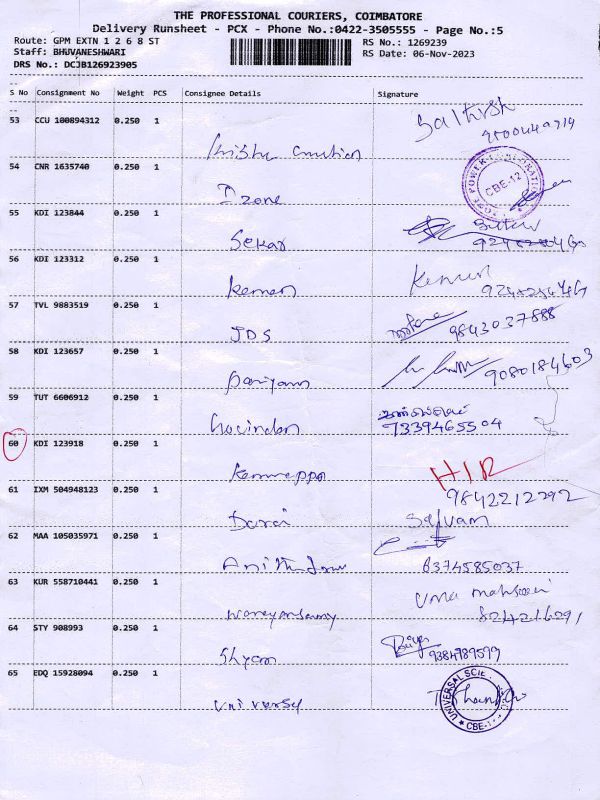 THE PROFESSIONAL COURIERS, COIMBATORE
Delivery Runsheet - PCX - Phone No.:0422-3505555 - Page No.:5
Route: GPM EXTN 1 2 6 8 ST
RS No.: 1269239
Staff: BHUVANESHWARI
RS Date: 06-Nov-2023
DRS No.: DCJB126923905
S No Consignment No Weight PCS Consignee Details Signature
53 CCU 100894312 0.250 1 Sathish
54 CNR 1635740 0.250 1 Izone CBE-12
55 KDI 123844 0.250 1 Sekar
56 KDI 123312 0.250 1
57 TVL 9883519 0.250 1 JDS 9843037888
58 KDI 123657 0.250 1 9080184603
59 TUT 6606912 0.250 1 Govindan 7339465504
60 KDI 123918 0.250 1 9842212292
61 IXM 504948123 0.250 1 Dorai Selvam
62 MAA 105035971 0.250 1 8374585037
63 KUR 558710441 0.250 1 Narayansamy
64 STY 908993 0.250 1 Shyam 9384989599
65 EDQ 15928094 0.250 1 Universel UNIVERSAL SCIE